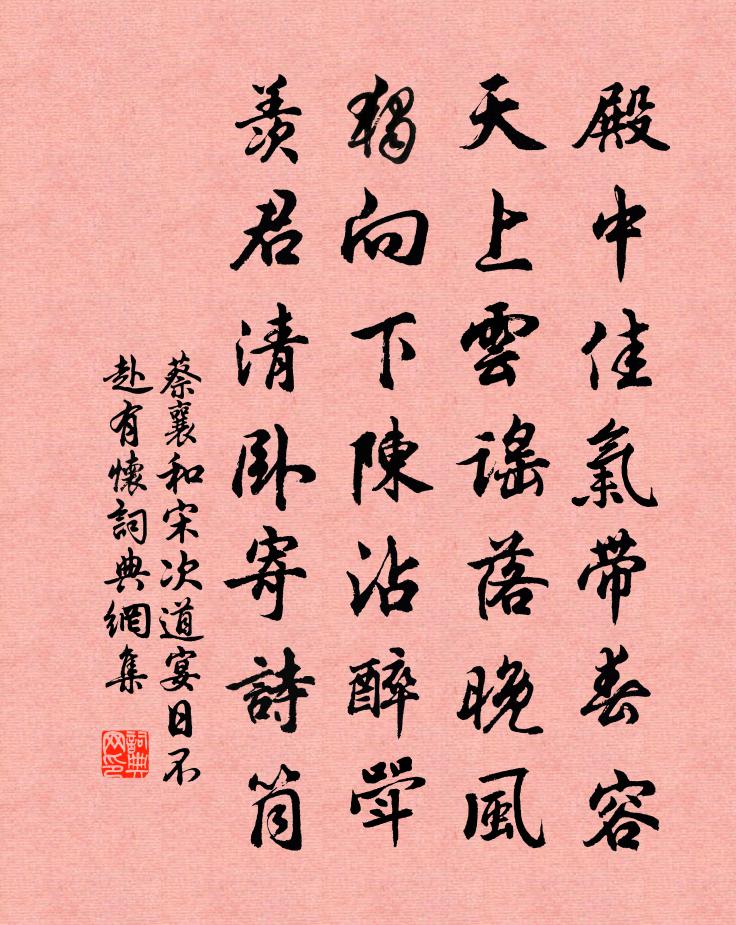 殿中佳氣帶春容
天上雲謠落晚風
獨向下陳沾醉斝
羨君清臥寄詩筒
蔡襄和宋次道宴日不
赴有懷詞典網集
詞典
网印